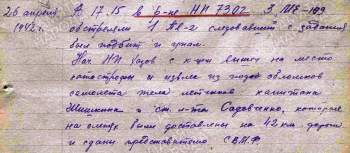 26 апреля В 17.15 в р-не НП 7302 3 МЕ-109
1942г. обстреляли "1 Пе-2 следовавший с задания
был подбит и упал.
Нач НП Уазов с к-ции вышел на место
катастрофы и извлек из под обломков
самолета тела летчиков капитана
Шишкина и ст. л-та Садовченко, которые
на были доставлены на 42 км дороги
и сданы представителю С.В.М.Ф.